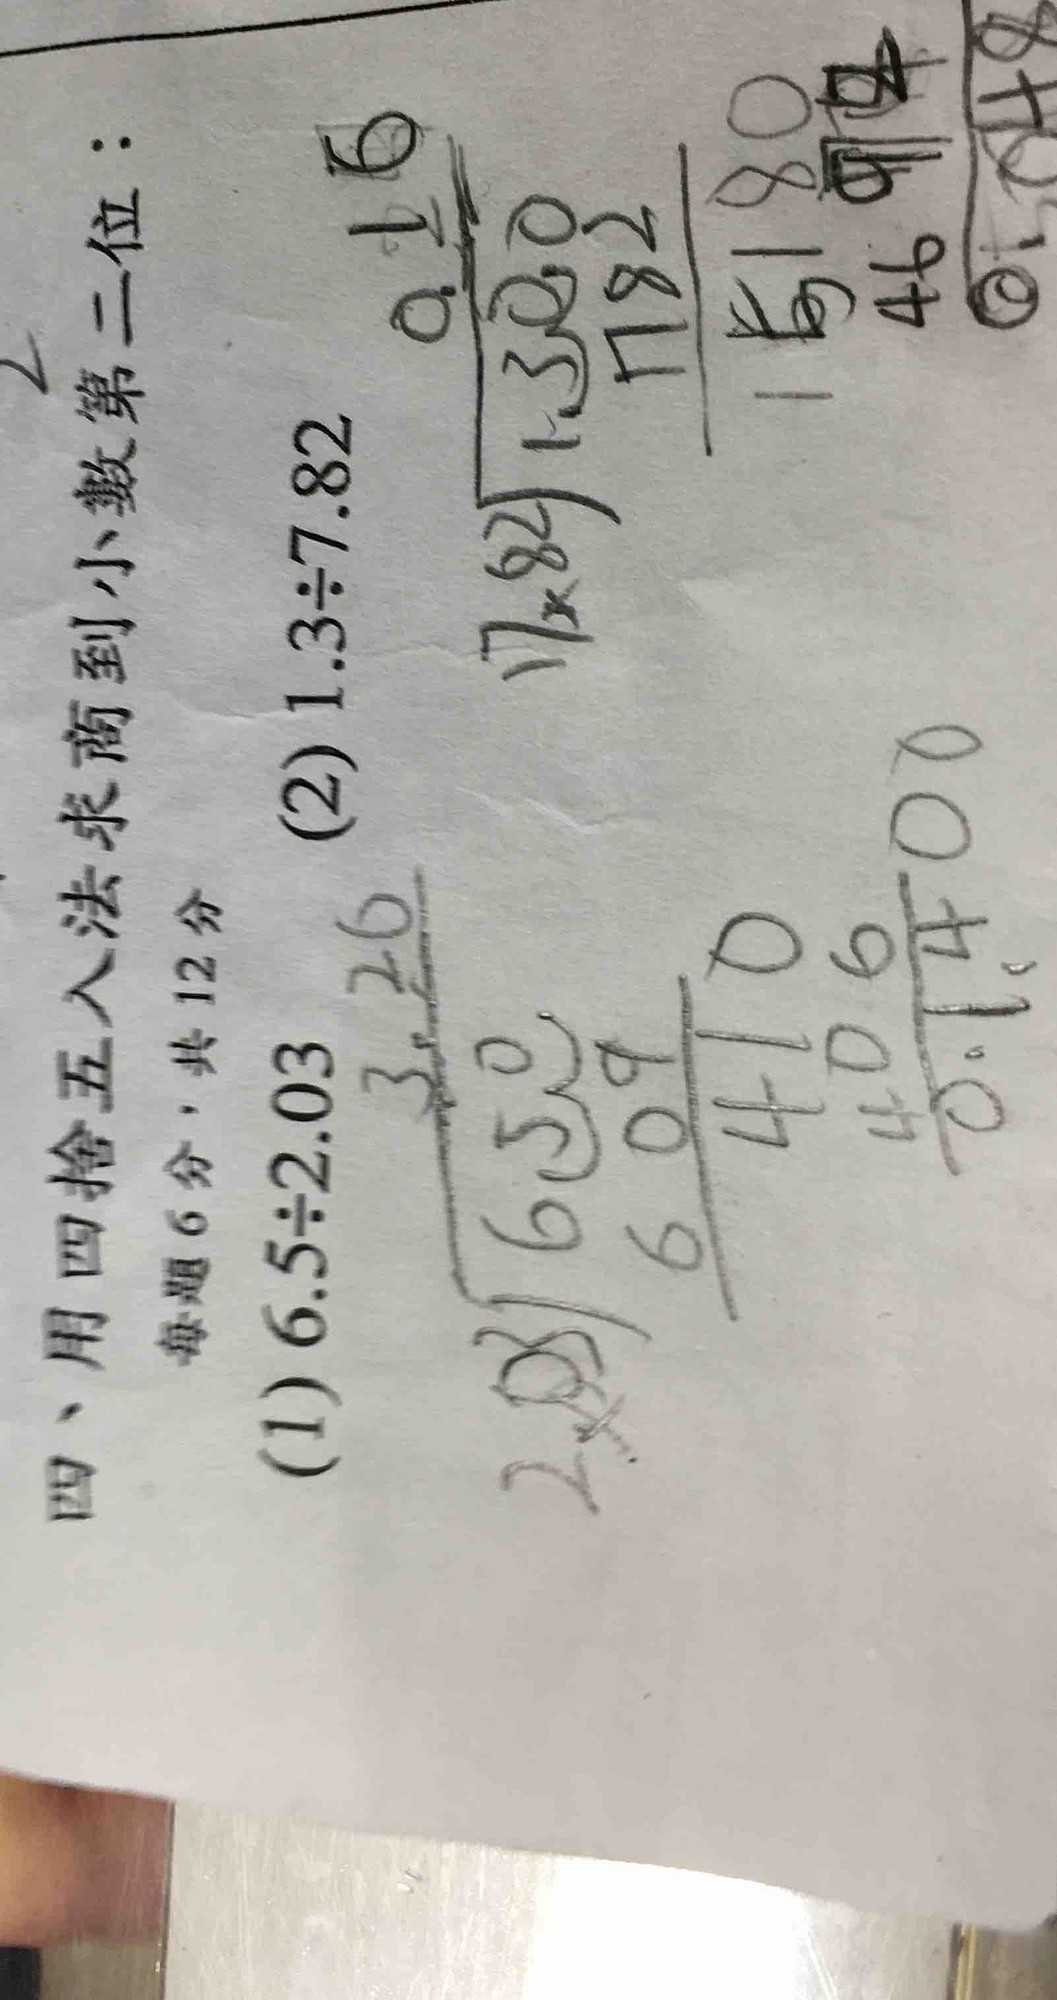 四、用四捨五入法求商到小數第二位：
每題6分，共12分
(1) 6.5÷2.03
(2) 1.3÷7.82
3.20
2.03
650
609
410
406
0.1400
0.16
7.82
1.300
782
5180
46